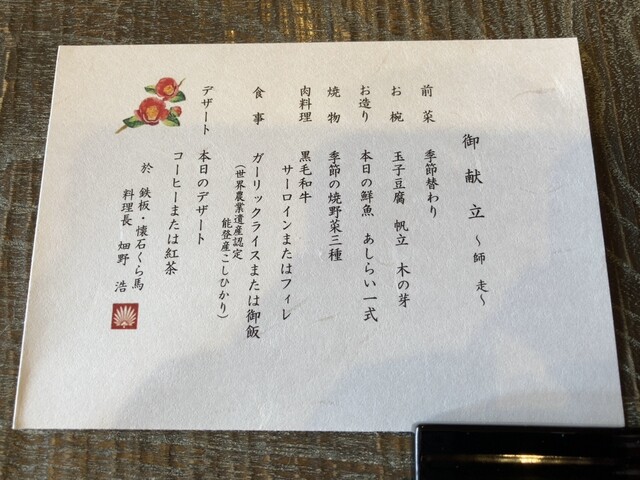 御献立 ～師走～
前菜 季節替わり
お椀 玉子豆腐 帆立 木の芽
お造り 本日の鮮魚 あしらい一式
焼物 季節の焼野菜三種
肉料理 黒毛和牛
サーロインまたはフィレ
食事 ガーリックライスまたは御飯
（世界農業遺産認定
能登産こしひかり）
デザート 本日のデザート
コーヒーまたは紅茶
於 鉄板・懐石くら馬
料理長 畑野 浩